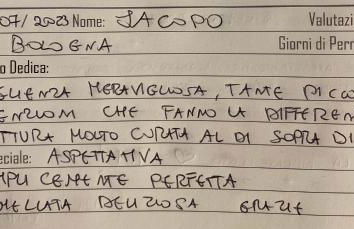 07/2023 Nome: JACOPO Valutazi
BOLOGNA Giorni di Perm
o Dedica:
GUENZA MERAVIGLIOSA, TANTE PICCO
ENZIONI CHE FANNO LA DIFFEREN
TTURA MOLTO CURATA AL DI SOPRA DI
eciale: ASPETTATIVA
MPLICEMENTE PERFETTA
MELLATA DELIZIOSA GRAZIE